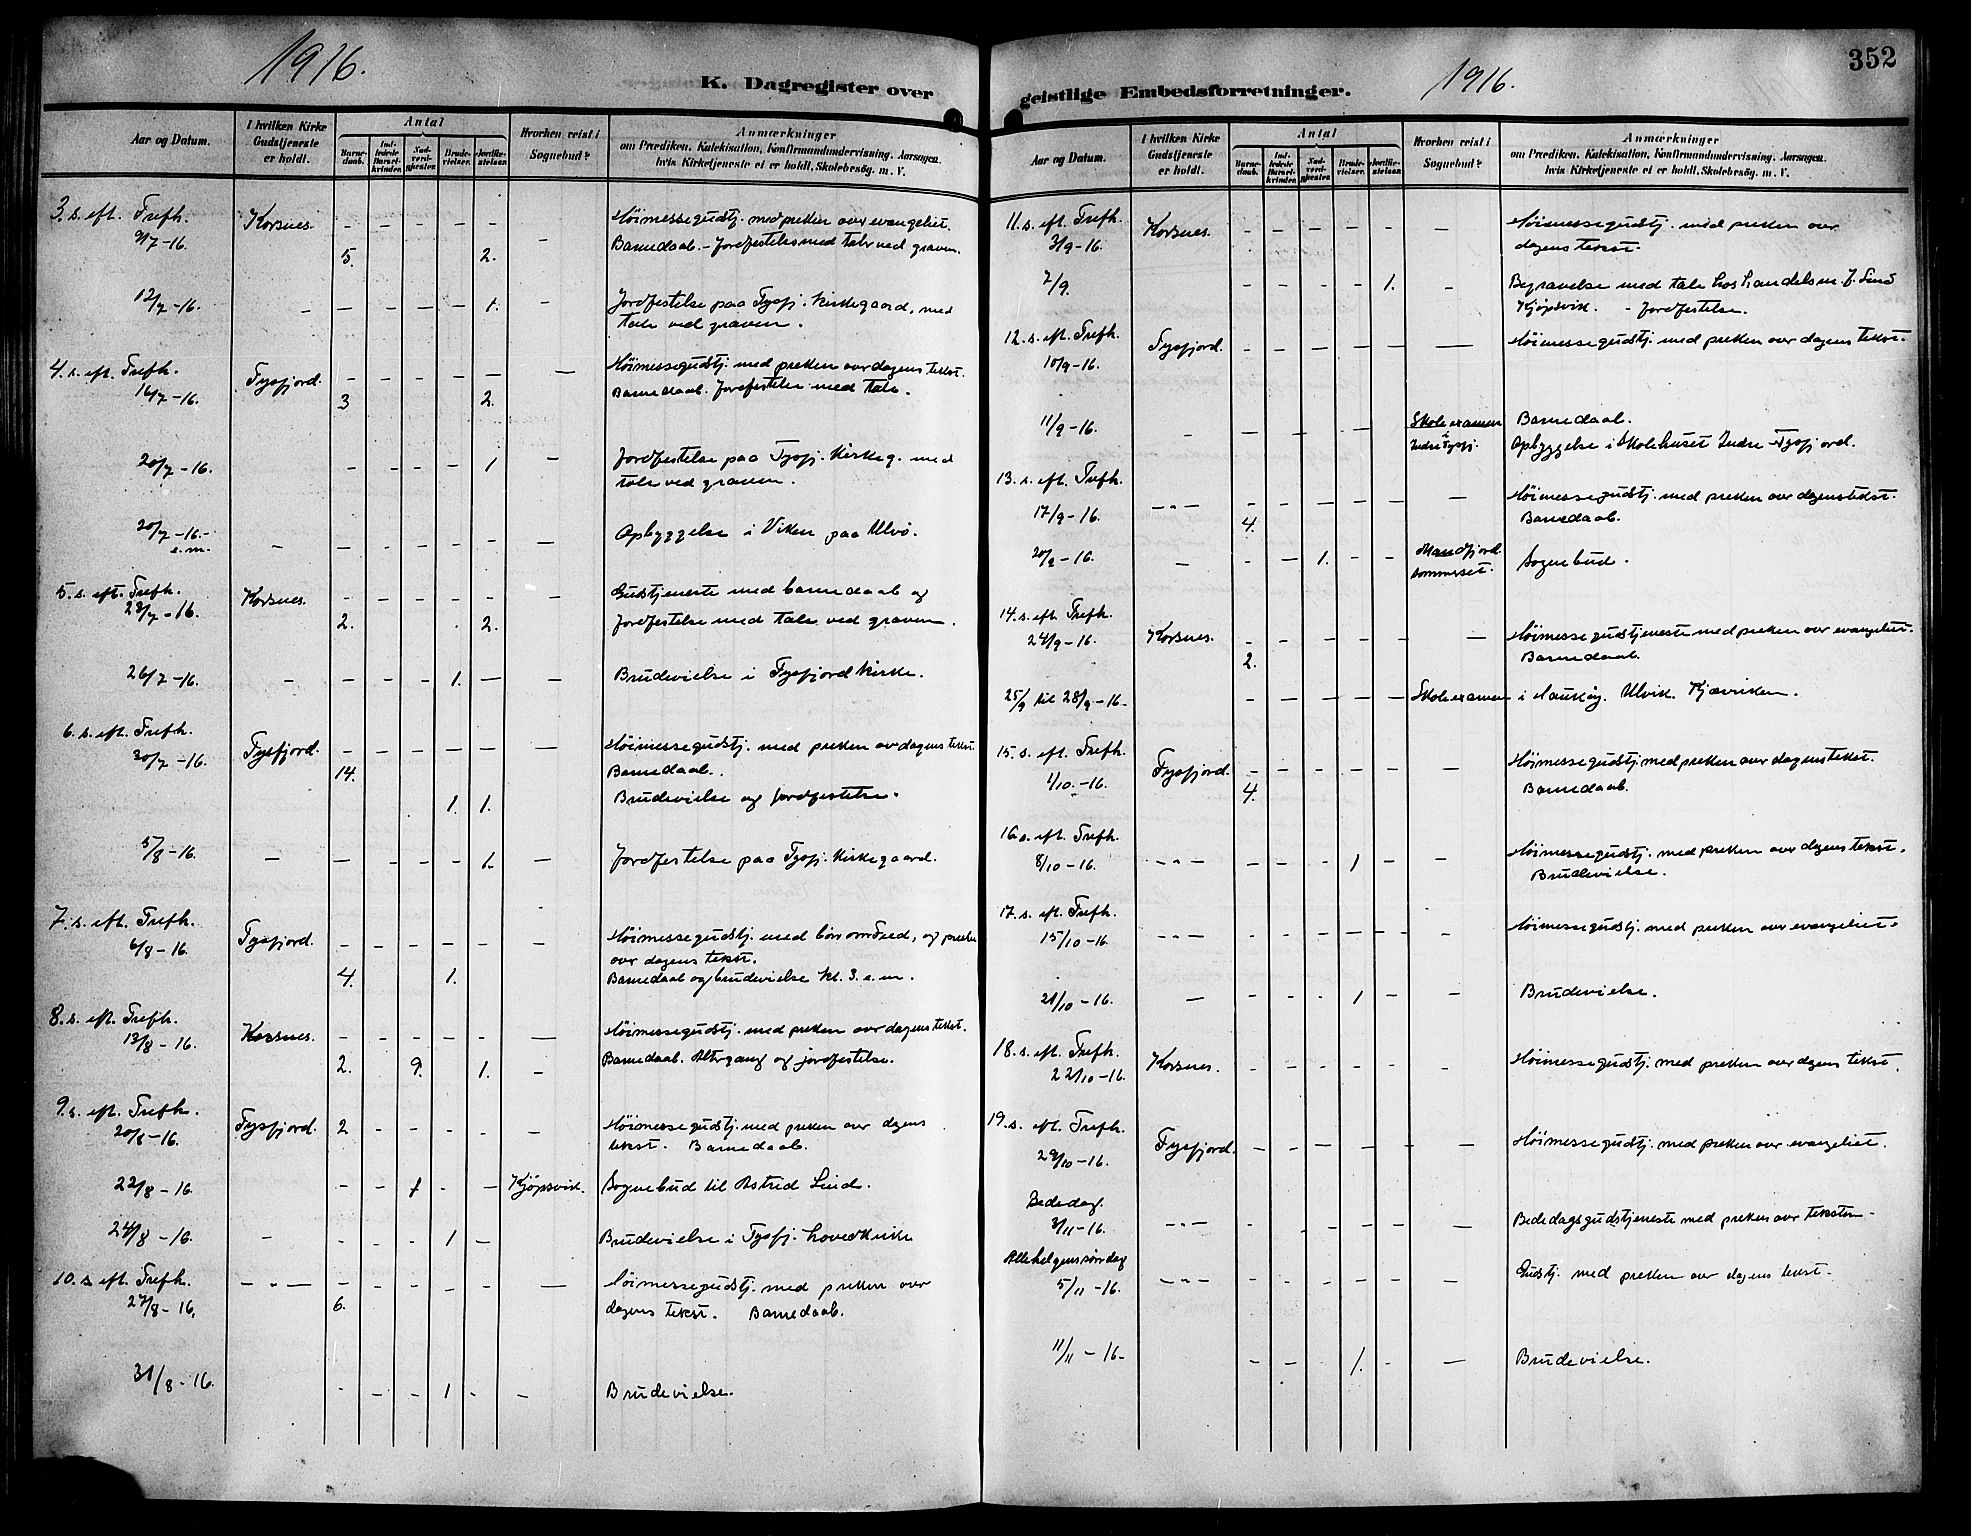 1916.
K. Dagregister over
Aar og Datum.
I hvilken Kirke Gudstjeneste er holdt.
Antal
Barnedaab.
Indledede Barselkvinder.
Nadverdgjester.
Brudevielser.
Jordfæstelser.
Hvorhen reist i Sognebud?
Anmærkninger
om Prædiken, Katekisation, Konfirmandundervisning. Aarsagen,
hvis Kirketjeneste ei er holdt, Skolebesøg. m. V.
3. s. eft. Trefh. Korsnes. – – – – – Høimessegudstj. med preken over evangeliet.
9/7 -16. 5. 2. – Barnedaab. – Jordfestelse med tale ved graven.
12/7 -16. – – – – – 1. – Jordfestelse paa Tysfj. kirkegaard, med
tale ved graven.
4. s. eft. Trefh. Tysfjord. – – – – – – Høimessegudstj. med preken over dagens tekst.
16/7 -16. 3 2. Barnedaab. Jordfestelse med tale.
20/7 -16. – – – – 1 – Jordfestelse paa Tysfj. Kirkeg. med
tale ved graven.
20/7 -16.- e.m. – – – – – – – Opbyggelse i Viken paa Ulvö.
5. s. eft. Trefh. Korsnes. – – – – – – Gudstjeneste med barnedaab og
23/7 -16. 2. 2. Jordfestelse med tale ved graven.
26/7 -16. – – – – 1. – – Brudevielse i Tysfjord Kirke.
6. s. eft. Trefh.
30/7 -16. Tysfjord. – – – – – – Høimessegudstj. med preken over dagens tekst.
14. Barnedaab.
1. 1. Brudevielse og jordfestelse.
5/8 -16. – – – – – 1. – Jordfestelse paa Tysfj. Kirkegaard.
7. s. eft. Trefh.
6/8 -16. Tysfjord. – – – – – – Høimessegudstj. med bön om fred, og preken
over dagens tekst.
4. 1. Barnedaab og brudevielse kl. 3. e. m.
8. s. eft. Trefh.
13/8 -16. Korsnes. – – – – – – Høimessegudstj. med preken over dagens tekst.
2. 9. 1. – Barnedaab. Altergang og jordfestelse.
9. s. eft. Trefh.
20/8 -16. Tysfjord. 2 – – – – – Høimessegudstj. med preken over dagens
tekst. Barnedaab.
22/8 -16. – – 1 – – Kjöpsvik. Sognebud til Astrid Lind.
24/8 -16. – – – – 1 – Brudevielse i Tysfj. hovedkirke
10. s. eft. Trefh. – " – – – – – – – Höimessegudstj. med preken over
27/8 -16. 6. dagens tekst. Barnedaab.
31/8 -16. – – – 1 – – Brudevielse.
352
geistlige Embedsforretninger.
1916.
Aar og Datum.
I hvilken Kirke Gudstjeneste er holdt.
Antal
Barnedaab.
Indledede Barselkvinder.
Nadverdgjester.
Brudevielser.
Jordfæstelser.
Hvorhen reist i Sognebud?
Anmærkninger
om Prædiken, Katekisation, Konfirmandundervisning. Aarsagen,
hvis Kirketjeneste ei er holdt, Skolebesøg. m. V.
11. s. eft. Trefh. Korsnes. – – – – – – Høimessegudstj. med preken over
3/9 -16. dagens tekst.
7/9. – – – – 1. – Begravelse med tale hos handelsm. J. Lind
Kjöpsvik. – Jordfestelse.
12. s. eft. Trefh.
10/9 -16. Tysfjord. – – – – – – Høimessegudstj. med preken over dagens tekst.
11/9 -16. – – – – Skole examen Barnedaab.
i Indre Tysfj. Opbyggelse i Skolehuset Indre Tysfjord.
13. s. eft. Trefh.
17/9 -16. – " – – – – – – – Høimessegudstj. med preken over dagens tekst.
4. Barnedaab.
20/9 -16. – – – 1. – – Mandfjord Sognebud.
sommerset.
14. s. eft. Trefh.
24/9 -16. Korsnes. – – – – – – Høimessegudstjeneste med preken over evangeliet.
2. Barnedaab.
25/9 til 28/9 -16 – – – – – Skole examen i Haukøy, Ulvik. Kjærviken.
15. s. eft. Trefh.
1/10. -16. Tysfjord. – – – – – – Høimessegudstj. med preken over dagens tekst.
4. Barnedaab.
16 s. eft. Trefh.
8/10 -16. – " – – – – 1 – – Høimessegudstj. med preken over dagens tekst.
Brudevielse.
17. s. eft. Trefh.
15/10 -16. – " – – – – – – – Høimessegudstj. med preken over evangeliet.
21/10 -16. – – – – 1 – – Brudevielse.
18. s. eft. Trefh.
22/10 -16. Korsnes. – – – – – – Høimessegudstj. med preken over dagens tekst.
19. s. eft. Trefh.
29/10 -16. Tysfjord. – – – – – – Høimessegudstj. med preken over evangeliet.
Bededag.
3/11 -16. – " – – – – – – – Bededagsgudstjeneste med preken over teksten
Allehelgenssöndag
5/11 -16. – " – – – – – – – Gudstj. med preken over dagens tekst.
11/11 -16- – – 1. – – Brudevielse.